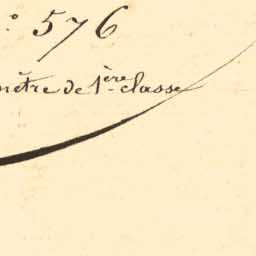 ° 576
mètre de 1ère classe